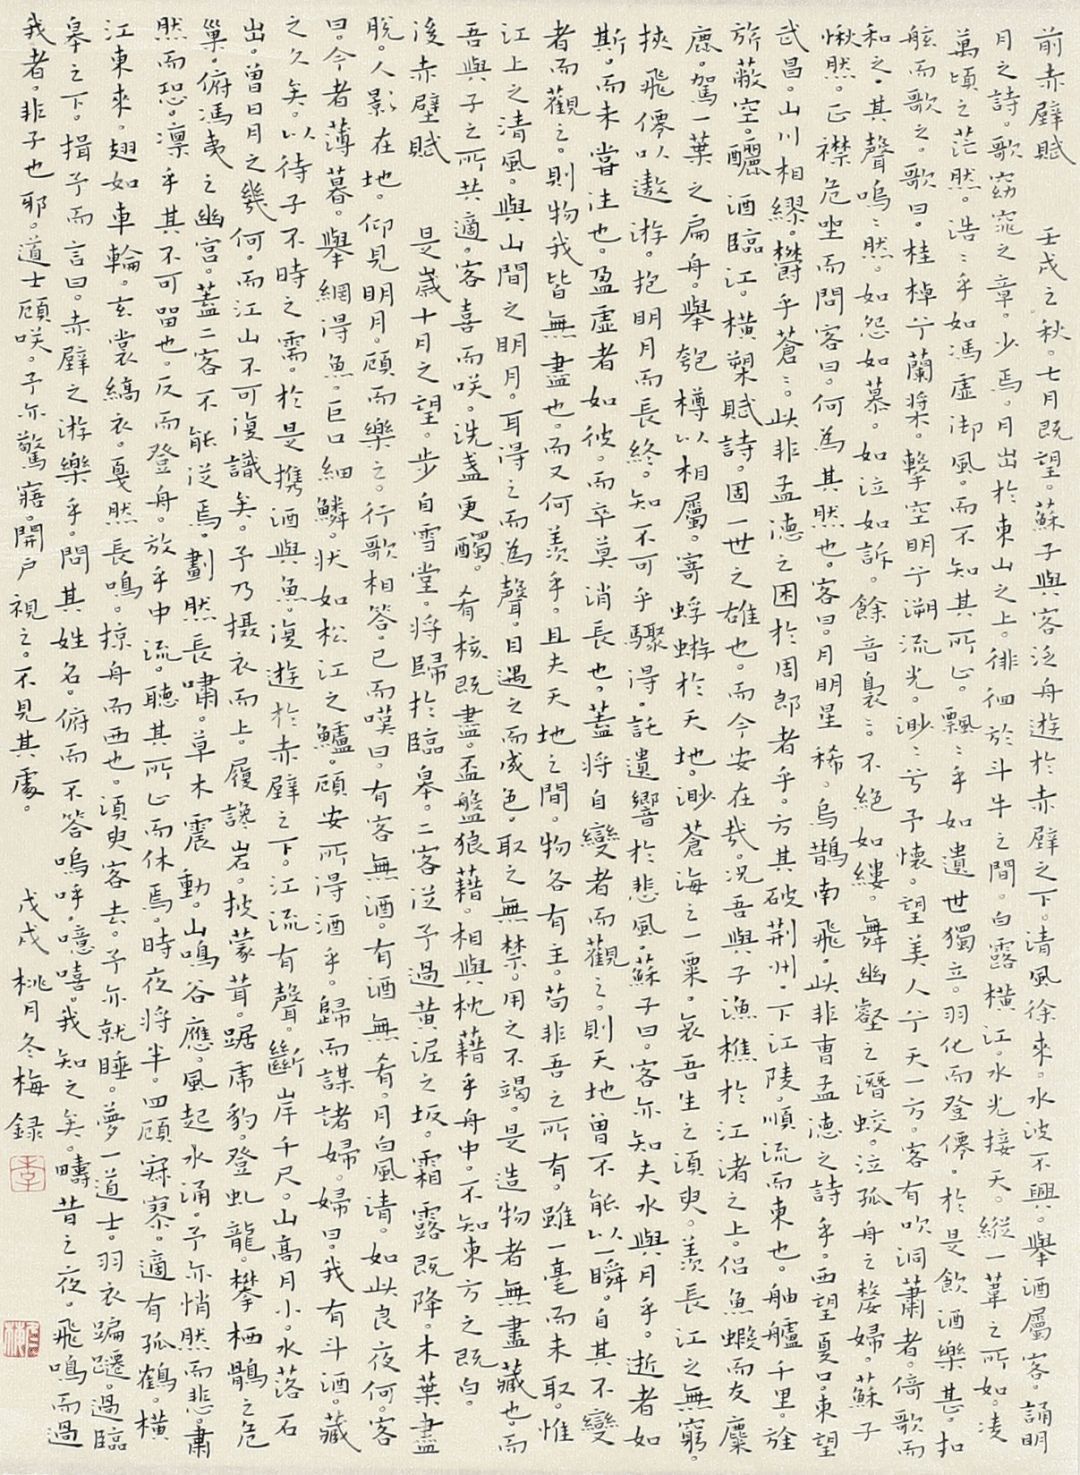 前赤壁賦　壬戌之秋。七月既望。蘇子與客泛舟遊於赤壁之下。清風徐來。水波不興。舉酒屬客。誦明
月之詩。歌窈窕之章。少焉。月出於東山之上。徘徊於斗牛之間。白露橫江。水光接天。縱一葦之所如。凌
萬頃之茫然。浩〻乎如馮虛御風。而不知其所止。飄〻乎如遺世獨立。羽化而登僊。於是飲酒樂甚。扣
舷而歌之。歌曰。桂棹兮蘭槳。擊空明兮溯流光。渺〻兮予懷。望美人兮天一方。客有吹洞蕭者。倚歌而
和之。其聲嗚〻然。如怨如慕。如泣如訴。餘音裊〻。不絕如縷。舞幽壑之潛蛟。泣孤舟之嫠婦。蘇子
愀然。正襟危坐而問客曰。何為其然也。客曰。月明星稀。烏鵲南飛。此非曹孟德之詩乎。西望夏口。東望
武昌。山川相繆。欝乎蒼〻。此非孟德之困於周郎者乎。方其破荆州。下江陵。順流而東也。舳艫千里。旌
旂蔽空。釃酒臨江。橫槊賦詩。固一世之雄也。而今安在哉。況吾與子漁樵於江渚之上。侶魚蝦而友麋
鹿。駕一葉之扁舟。舉匏樽以相屬。寄蜉蝣於天地。渺蒼海之一粟。哀吾生之須臾。羨長江之無窮。
挾飛僊以遨游。抱明月而長終。知不可乎驟得。託遺響於悲風。蘇子曰。客亦知夫水與月乎。逝者如
斯。而未嘗往也。盈虛者如彼。而卒莫消長也。蓋將自變者而觀之。則天地曾不能以一瞬。自其不變
者而觀之。則物我皆無盡也。而又何羨乎。且夫天地之間。物各有主。苟非吾之所有。雖一毫而未取。惟
江上之清風。與山間之明月。耳得之而為聲。目遇之而成色。取之無禁。用之不竭。是造物者無盡藏也。而
吾與子之所共適。客喜而咲。洗盞更酌。肴核既盡。盃盤狼藉。相與枕藉乎舟中。不知東方之既白。
後赤壁賦　是歲十月之望。步自雪堂。將歸於臨皋。二客從予過黃泥之坂。霜露既降。木葉盡
脫。人影在地。仰見明月。顧而樂之。行歌相答。已而嘆曰。有客無酒。有酒無肴。月白風清。如此良夜何。客
曰。今者薄暮。舉網得魚。巨口細鱗。狀如松江之鱸。顧安所得酒乎。歸而謀諸婦。婦曰。我有斗酒。藏
之久矣。以待子不時之需。於是攜酒與魚。復遊於赤壁之下。江流有聲。斷岸千尺。山高月小。水落石
出。曾日月之幾何。而江山不可復識矣。予乃攝衣而上。履讒岩。披蒙茸。踞虎豹。登虬龍。攀栖鶻之危
巢。俯馮夷之幽宮。蓋二客不能從焉。劃然長嘯。草木震動。山鳴谷應。風起水涌。予亦悄然而悲。肅
然而恐。凛乎其不可留也。反而登舟。放乎中流。聽其所止而休焉。時夜將半。四顧寂寥。適有孤鶴。橫
江東來。翅如車輪。玄裳縞衣。戛然長鳴。掠舟而西也。須臾客去。予亦就睡。夢一道士。羽衣蹁躚。過臨
皋之下。揖予而言曰。赤壁之游樂乎。問其姓名。俯而不答。嗚呼。噫嘻。我知之矣。疇昔之夜。飛鳴而過
我者。非子也耶。道士顧咲。予亦驚寤。開戶視之。不見其處。　戊戌桃月冬梅錄
李